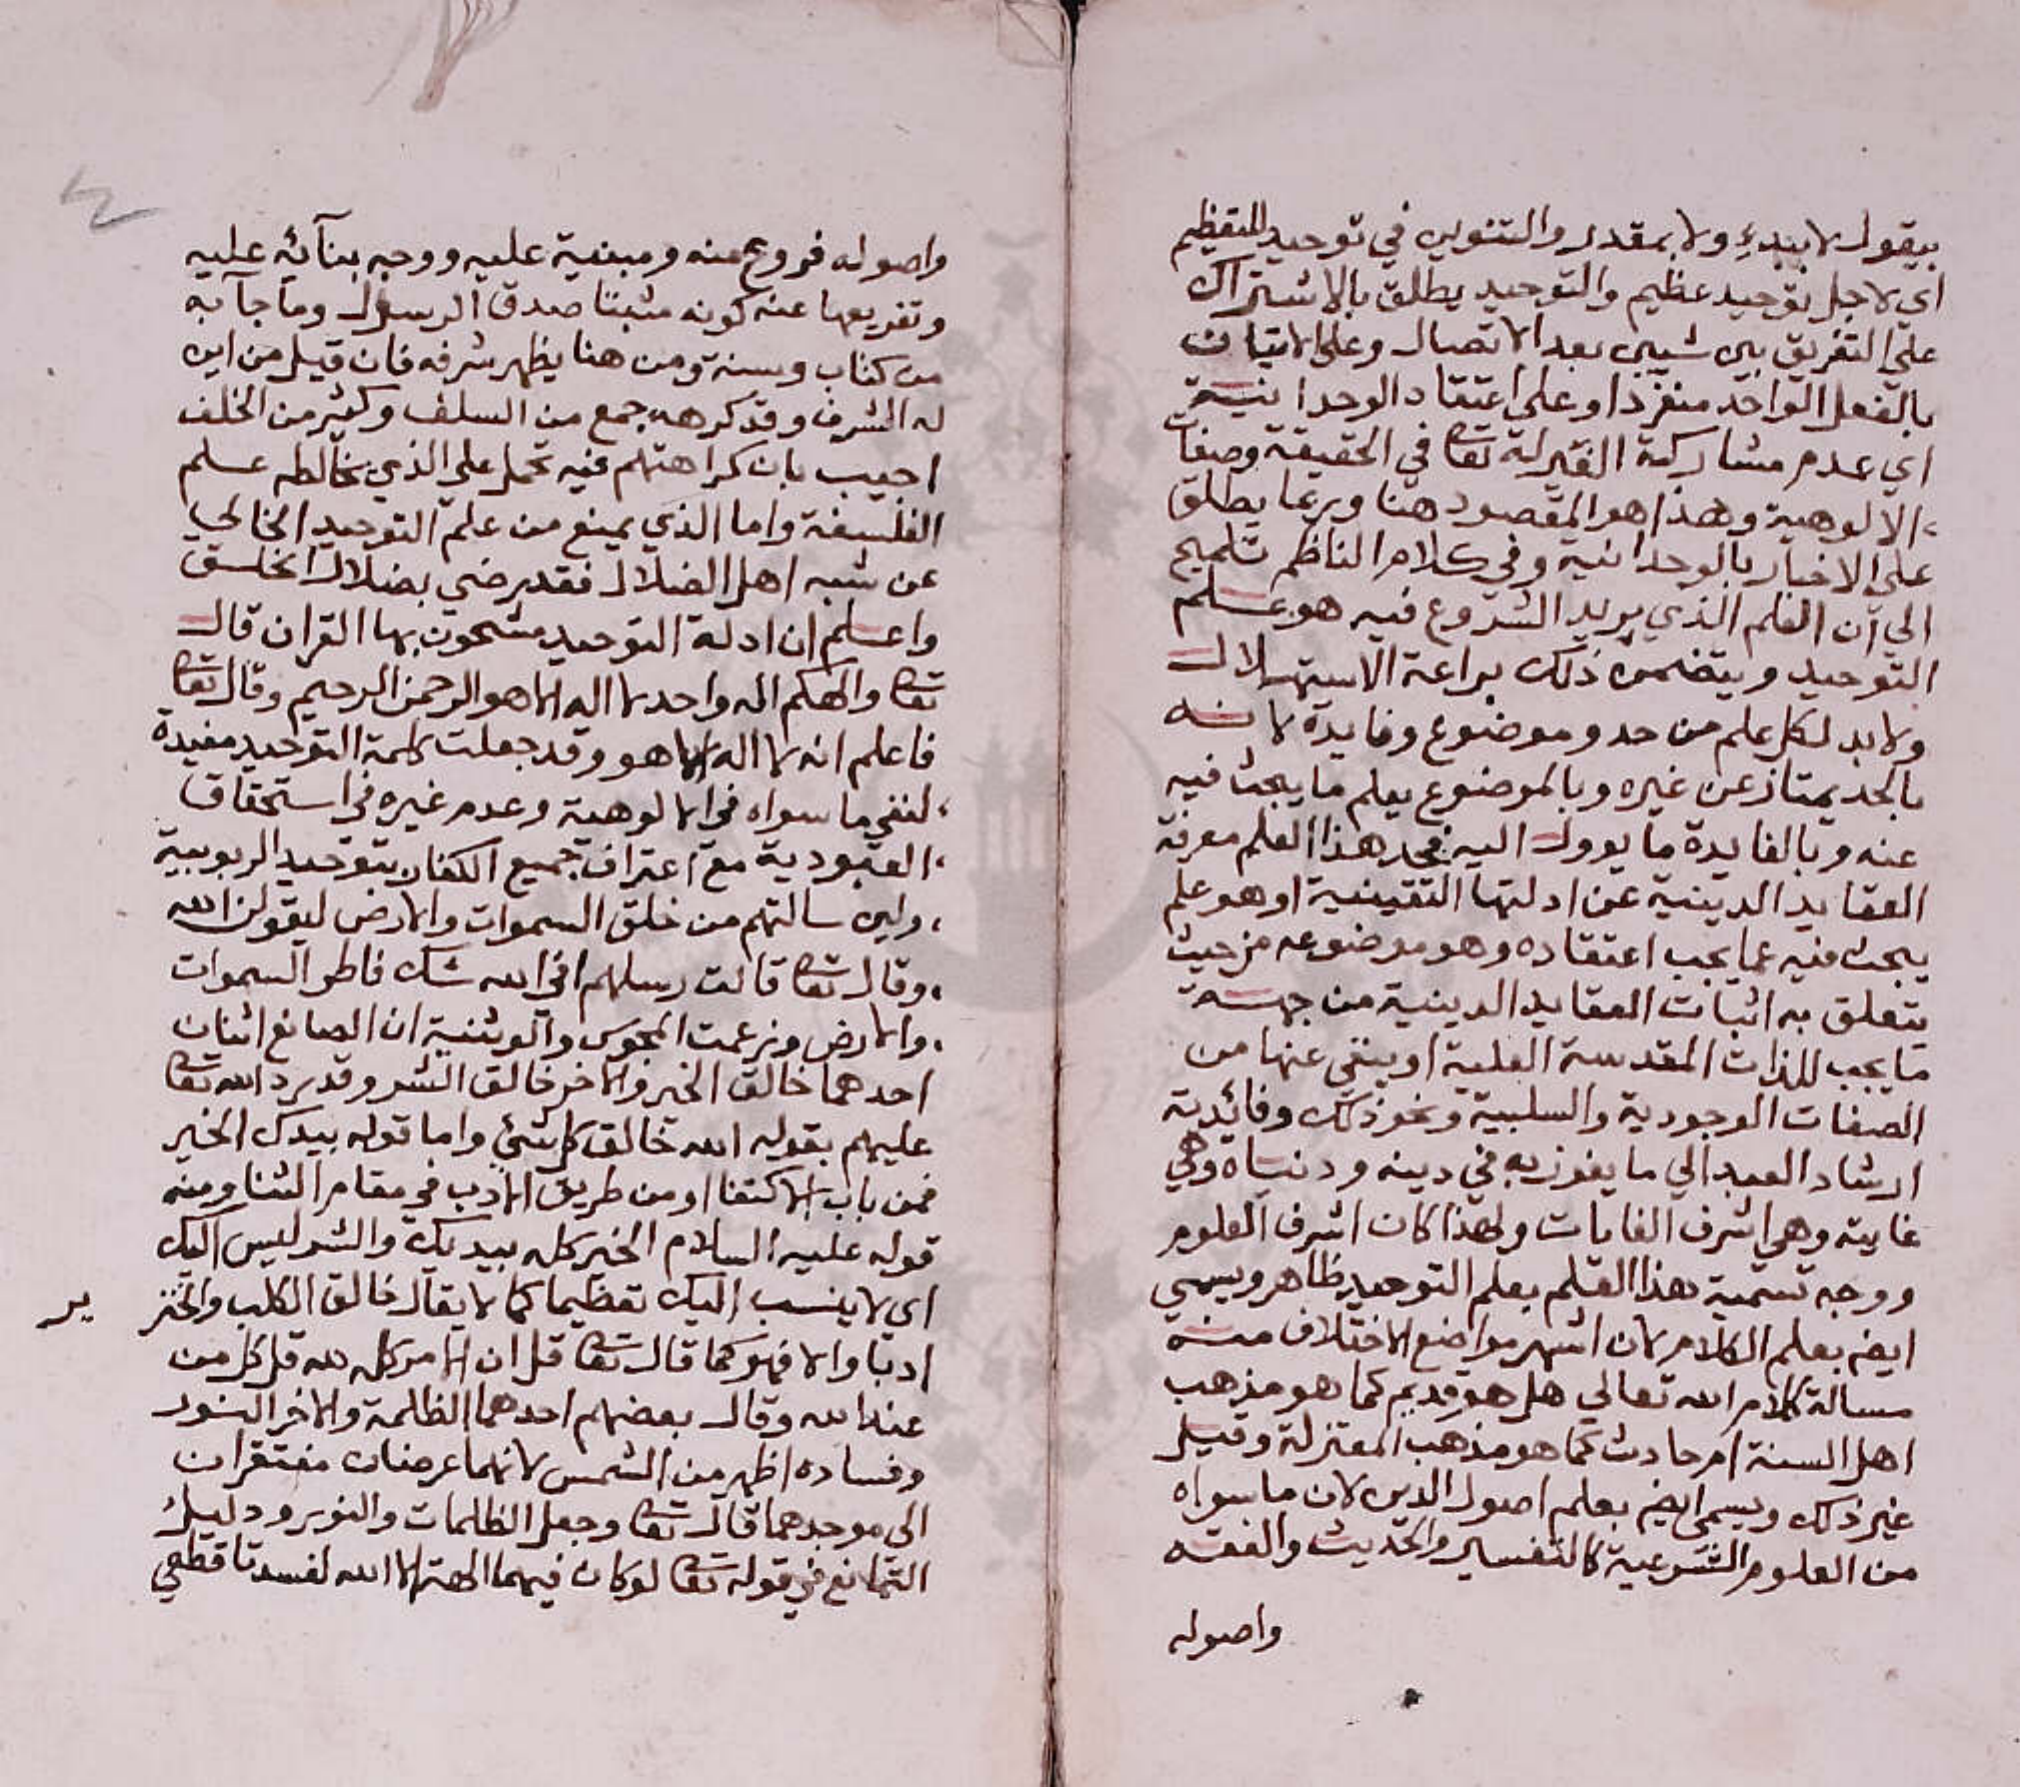 بيقول لا بيبدي ولا بمقدر والتنوين في توحيد للتعظيم
اي لاجل توحيد عظيم والتوحيد يطلق بالاشتراك
علي التفريق بين شيين بعد الاتصال وعلي الاتيان
بالفعل الواحد منفردا وعلي اعتقاد الوحدانية
اي عدم مشاركة الغير له تعا في الحقيقة وصفات
الالوهية وهذا هو المقصود هنا وربما يطلق
علي الاخبار بالوحدانية وفي كلام الناظم تلميح
الي ان العلم الذي يريد الشروع فيه هو علم
التوحيد ويتضمن ذلك براعة الاستهلال
ولابد لكل علم من حد وموضوع وفايدة لانه
بالحد يمتاز عن غيره وبالموضوع يعلم ما يبحث فيه
عنه وبالفايدة ما يوول اليه فحد هذا العلم معرفة
العقايد الدينية عن ادلتها التقينية او هو علم
يبحث فيه عما يجب اعتقاده وهو موضوعه من حيث
يتعلق به اثبات العقايد الدينية من جهة
ما يجب للذات المقدسة العلية او ينفي عنها من
الصفات الوجودية والسلبية ونحو ذلك وفائدته
ارشاد العبد الي ما يفوز به في دينه ودنياه وهي
غايته وهي اشرف الغايات ولهذا كان اشرف العلوم
ووجه تسمية هذا العلم بعلم التوحيد ظاهر ويسمي
ايضم بعلم الكلام لان اشهر مواضع الاختلاف منه
مسالة كلام الله تعالي هل هو قديم كما هو مذهب
اهل السنة ام حادث كما هو مذهب المعتزلة وقيل
غير ذلك ويسمي ايضم بعلم اصول الدين لان ما سواه
من العلوم الشرعية كالتفسير والحديث والفقه
واصوله
واصوله فروع عنه ومبنية عليه ووجه بنآئه عليه
وتفريعها عنه كونه مثبتا صدق الرسول وما جآ به
من كتاب وسنة ومن هنا يظهر شرفه فان قيل من اين
له الشرف وقد كرهه جمع من السلف وكثير من الخلف
اجيب بان كراهتهم فيه تحمل علي الذي يخالطه علم
الفلسفة واما الذي يمنع من علم التوحيد الخالي
عن شبه اهل الضلال فقد رضي بضلال الخلق
واعلم ان ادلة التوحيد مشحون بها القران قال
تعا والهكم اله واحد لا اله الا هو الرحمن الرحيم وقال تعا
فاعلم انه لا اله الا هو وقد جعلت كلمة التوحيد مفيدة
لنفي ما سواه في الالوهية وعدم غيره في استحقاق
العبودية مع اعتراف جميع الكفار بتوحيد الربوبية
ولين سالتهم من خلق السموات والارض ليقولن الله
وقال تعا قالت رسلهم افي الله شك فاطر السموات
والارض وزعمت المجوس والوثنية ان الصانع اثنان
احدهما خالق الخير والاخر خالق الشر وقد رد الله تعا
عليهم بقوله الله خالق كل شئ واما قوله بيدك الخير
فمن باب الاكتفا او من طريق الادب في مقام الثنا ومنه
قوله عليه السلام الخير كله بيديك والشر ليس اليك
اي لا ينسب اليك تعظيما كما لا يقال خالق الكلب والخنز ير
ادبا والا فهو كما قال تعا قل ان الامر كله لله قل كل من
عند الله وقال بعضهم احدهما الظلمة والاخر النور
وفساده اظهر من الشمس لانهما عرضان مفتقران
الى موجدهما قال تعا وجعل الظلمات والنور ودليل
التمانع في قوله تعا لو كان فيهما الهة الا الله لفسدتا قطعي